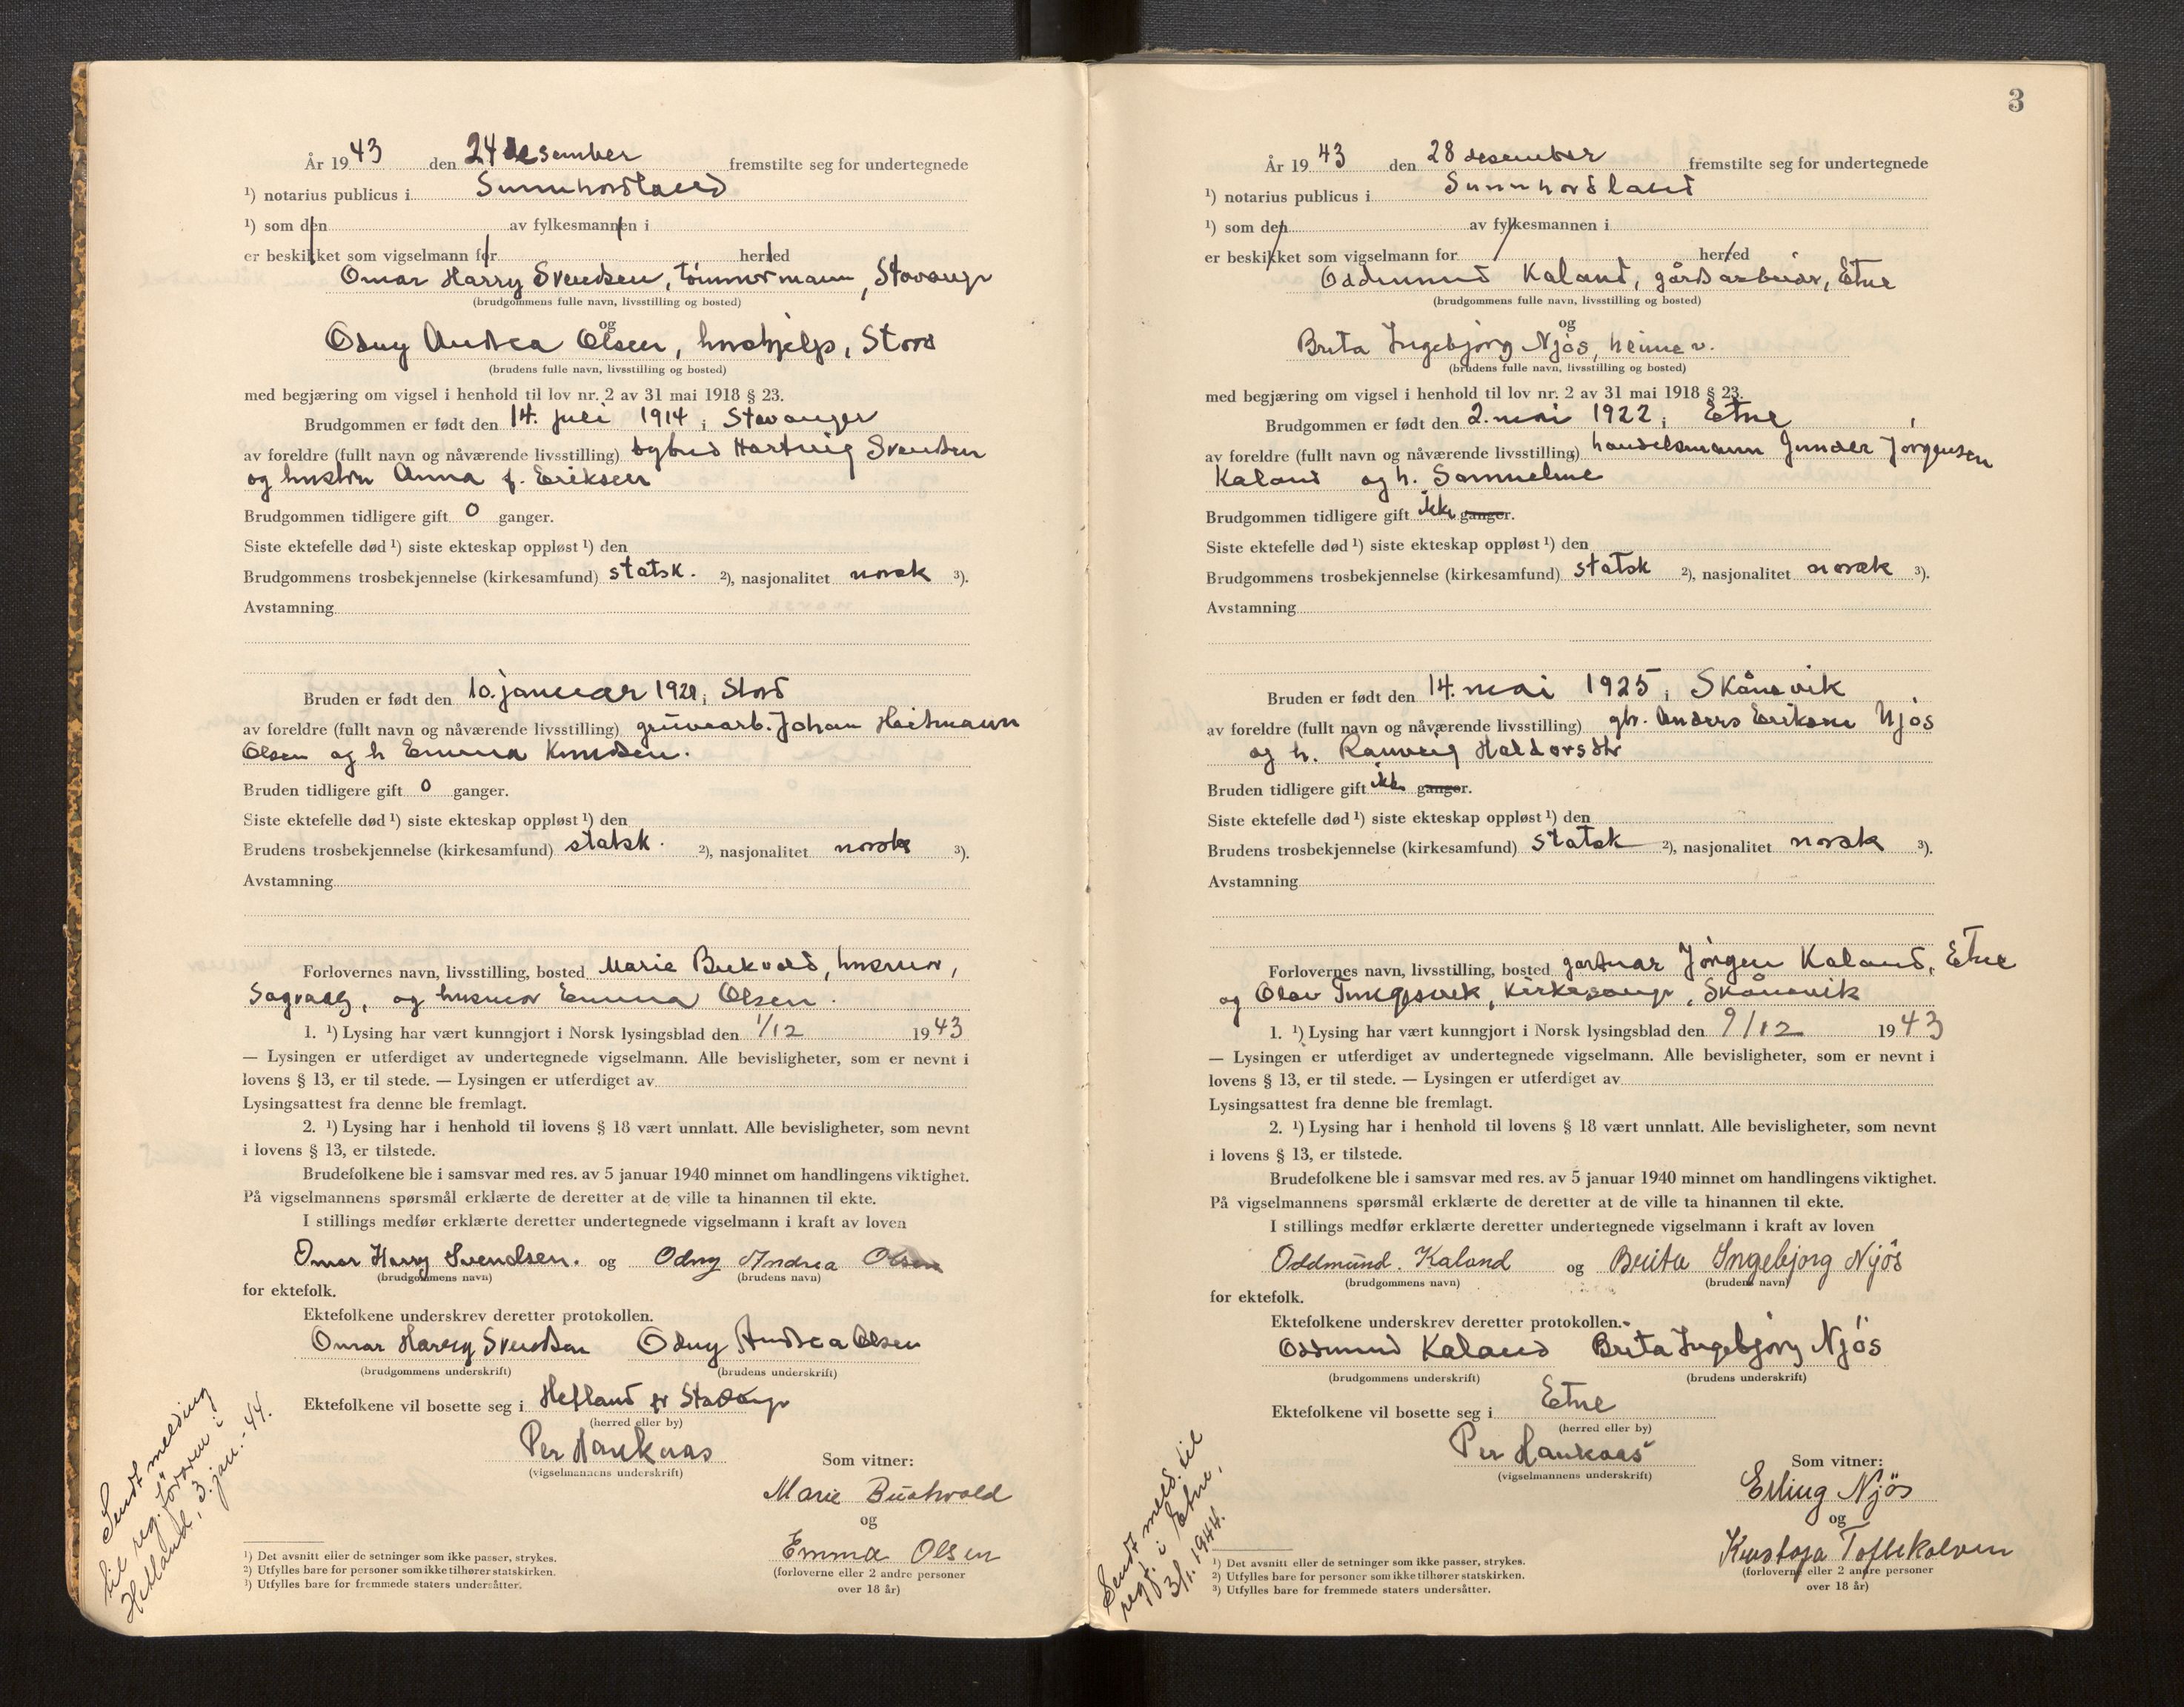 År 1943 den 24 desember fremstilte seg for undertegnede
¹) notarius publicus i Sunnhordland
¹) som den av fylkesmannen i
er beskikket som vigselmann for herred
Omar Harry Svendsen, tømmermann, Stavanger
(brudgommens fulle navn, livsstilling og bosted)
og
Odny Andrea Olsen, hushjelp, Stord
(brudens fulle navn, livsstilling og bosted)
med begjæring om vigsel i henhold til lov nr. 2 av 31 mai 1918 § 23.
Brudgommen er født den 14. juli 1914 i Stavanger
av foreldre (fullt navn og nåværende livsstilling) bybud Hartvig Svendsen
og hustru Anna f. Eriksen
Brudgommen tidligere gift 0 ganger.
Siste ektefelle død ¹) siste ekteskap oppløst ¹) den
Brudgommens trosbekjennelse (kirkesamfund) statsk. ²), nasjonalitet norsk ³).
Avstamning
Bruden er født den 10. januar i Stord
av foreldre (fullt navn og nåværende livsstilling) gruvearb. Johan Heitmann
Olsen og h Emma Knudsen.
Bruden tidligere gift 0 ganger.
Siste ektefelle død ¹) siste ekteskap oppløst ¹) den
Brudens trosbekjennelse (kirkesamfund) statsk. ²), nasjonalitet norsk ³).
Avstamning
Forlovernes navn, livsstilling, bosted Marie husmor,
Sagvaag, og husmor Emma Olsen.
1. ¹) Lysing har vært kunngjort i Norsk lysingsblad den 1/12 1943
— Lysingen er utferdiget av undertegnede vigselmann. Alle bevisligheter, som er nevnt i
lovens § 13, er til stede. — Lysingen er utferdiget av
Lysingsattest fra denne ble fremlagt.
2. ¹) Lysing har i henhold til lovens § 18 vært unnlatt. Alle bevisligheter, som nevnt
i lovens § 13, er tilstede.
Brudefolkene ble i samsvar med res. av 5 januar 1940 minnet om handlingens viktighet.
På vigselmannens spørsmål erklærte de deretter at de ville ta hinannen til ekte.
I stillings medfør erklærte deretter undertegnede vigselmann i kraft av loven
Omar Harry Svendsen. og Odny Andrea Olsen
(brudgommens navn) (brudens navn)
for ektefolk.
Ektefolkene underskrev deretter protokollen.
Omar Harry Svendsen Odny Andrea Olsen
(brudgommens underskrift) (brudens underskrift)
Ektefolkene vil bosette seg i Hetland pr Stavanger
(herred eller by)
Per Haukaas
(vigselmannens underskrift)
Som vitner:
Marie
og
Emma Olsen
(forloverne eller 2 andre personer
over 18 år)
Sendt melding
til reg.föraren i
Hetland, 3. jan. - 44.
¹) Det avsnitt eller de setninger som ikke passer, strykes.
²) Utfylles bare for personer som ikke tilhører statskirken.
³) Utfylles bare for fremmede staters undersåtter.
3
År 1943 den 28 desember fremstilte seg for undertegnede
¹) notarius publicus i Sunnhordland
¹) som den av fylkesmannen i
er beskikket som vigselmann for herred
Oddmund Kaland, gårdsarbeider, Etne
(brudgommens fulle navn, livsstilling og bosted)
og
Brita Ingebjörg Njös, heime v.
(brudens fulle navn, livsstilling og bosted)
med begjæring om vigsel i henhold til lov nr. 2 av 31 mai 1918 § 23.
Brudgommen er født den 2. mai 1922 i Etne
av foreldre (fullt navn og nåværende livsstilling) handelsmann Gunder Jörgensen
Kaland og h. Samueline
Brudgommen tidligere gift ikke ganger.
Siste ektefelle død ¹) siste ekteskap oppløst ¹) den
Brudgommens trosbekjennelse (kirkesamfund) statsk ²), nasjonalitet norsk ³).
Avstamning
Bruden er født den 14. mai 1925 i Skånevik
av foreldre (fullt navn og nåværende livsstilling) gbr. Anders Eriksen Njös
og h. Ranveig Haldorsdtr
Bruden tidligere gift ikke ganger.
Siste ektefelle død ¹) siste ekteskap oppløst ¹) den
Brudens trosbekjennelse (kirkesamfund) statsk ²), nasjonalitet norsk ³).
Avstamning
Forlovernes navn, livsstilling, bosted gartnar Jörgen Kaland, Etne
og Olav kirkesongar, Skånevik
1. ¹) Lysing har vært kunngjort i Norsk lysingsblad den 9/12 1943
— Lysingen er utferdiget av undertegnede vigselmann. Alle bevisligheter, som er nevnt i
lovens § 13, er til stede. — Lysingen er utferdiget av
Lysingsattest fra denne ble fremlagt.
2. ¹) Lysing har i henhold til lovens § 18 vært unnlatt. Alle bevisligheter, som nevnt
i lovens § 13, er tilstede.
Brudefolkene ble i samsvar med res. av 5 januar 1940 minnet om handlingens viktighet.
På vigselmannens spørsmål erklærte de deretter at de ville ta hinannen til ekte.
I stillings medfør erklærte deretter undertegnede vigselmann i kraft av loven
Oddmund. Kaland og Brita Ingebjørg Njös
(brudgommens navn) (brudens navn)
for ektefolk.
Ektefolkene underskrev deretter protokollen.
Oddmund Kaland Brita Ingebjörg Njös
(brudgommens underskrift) (brudens underskrift)
Ektefolkene vil bosette seg i Etne
(herred eller by)
Per Haukaas
(vigselmannens underskrift)
Som vitner:
Erling Njös
og
Toftekalven
(forloverne eller 2 andre personer
over 18 år)
Sendt meld. til
regf. i Etne,
3/1. 1944.
¹) Det avsnitt eller de setninger som ikke passer, strykes.
²) Utfylles bare for personer som ikke tilhører statskirken.
³) Utfylles bare for fremmede staters undersåtter.